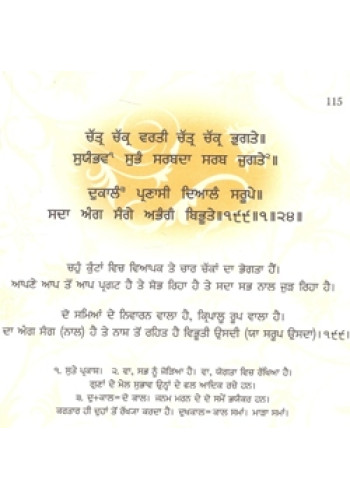 115
ਚੱਤ੍ਰ ਚੱਕ੍ਰ ਵਰਤੀ ਚੱਤ੍ਰ ਚੱਕ੍ਰ ਭੁਗਤੇ॥
ਸੁਯੰਭਵਾਂ ਸੁਭੰ ਸਰਬਦਾ ਸਰਬ ਜੁਗਤੇ॥
ਦੁਕਾਲੰ ਪ੍ਰਣਾਸੀ ਦਿਆਲੰ ਸਰੂਪੇ॥
ਸਦਾ ਅੰਗ ਸੰਗੇ ਅਭੰਗੰ ਬਿਭੂਤੇ॥੧੯੯॥੧॥੨੪॥
ਚਹੁੰ ਕੁੰਟਾਂ ਵਿਚ ਵਿਆਪਕ ਤੇ ਚਾਰ ਚੱਕਾਂ ਦਾ ਭੋਗਤਾ ਹੈਂ।
ਆਪਣੇ ਆਪ ਤੋਂ ਆਪ ਪ੍ਰਗਟ ਹੈ ਤੇ ਸੋਭ ਰਿਹਾ ਹੈ ਤੇ ਸਦਾ ਸਭ ਨਾਲ ਜੁੜ ਰਿਹਾ ਹੈ।
ਦੋ ਸਮਿਆਂ ਦੇ ਨਿਵਾਰਨ ਵਾਲਾ ਹੈ, ਕ੍ਰਿਪਾਲੂ ਰੂਪ ਵਾਲਾ ਹੈ।
ਦਾ ਅੰਗ ਸੰਗ (ਨਾਲ) ਹੈ ਤੇ ਨਾਸ਼ ਤੋਂ ਰਹਿਤ ਹੈ ਬਿਭੂਤੀ ਉਸਦੀ (ਯਾ ਸਰੂਪ ਉਸਦਾ)।੧੯੯।
੧. ਸੁਤੇ ਪ੍ਰਕਾਸ਼। ੨. ਵਾ, ਸਭ ਨੂੰ ਜੋੜਿਆ ਹੈ। ਵਾ, ਯੋਗਤਾ ਵਿਚ ਰੱਖਿਆ ਹੈ।
ਗੁਣਾਂ ਦੇ ਮੇਲ ਸੁਭਾਵ ਉਨ੍ਹਾਂ ਦੇ ਵਲ ਆਦਿਕ ਰਚੇ ਹਨ।
੩. ਦੁ+ਕਾਲ=ਦੋ ਕਾਲ। ਜਨਮ ਮਰਨ ਦੇ ਦੋ ਸਮੇਂ ਭਯੰਕਰ ਹਨ।
ਕਰਤਾਰ ਹੀ ਦੁਹਾਂ ਤੋਂ ਰੱਖਯਾ ਕਰਦਾ ਹੈ। ਦੁਖਕਾਲ=ਕਾਲ ਸਮਾਂ। ਮਾੜਾ ਸਮਾਂ।